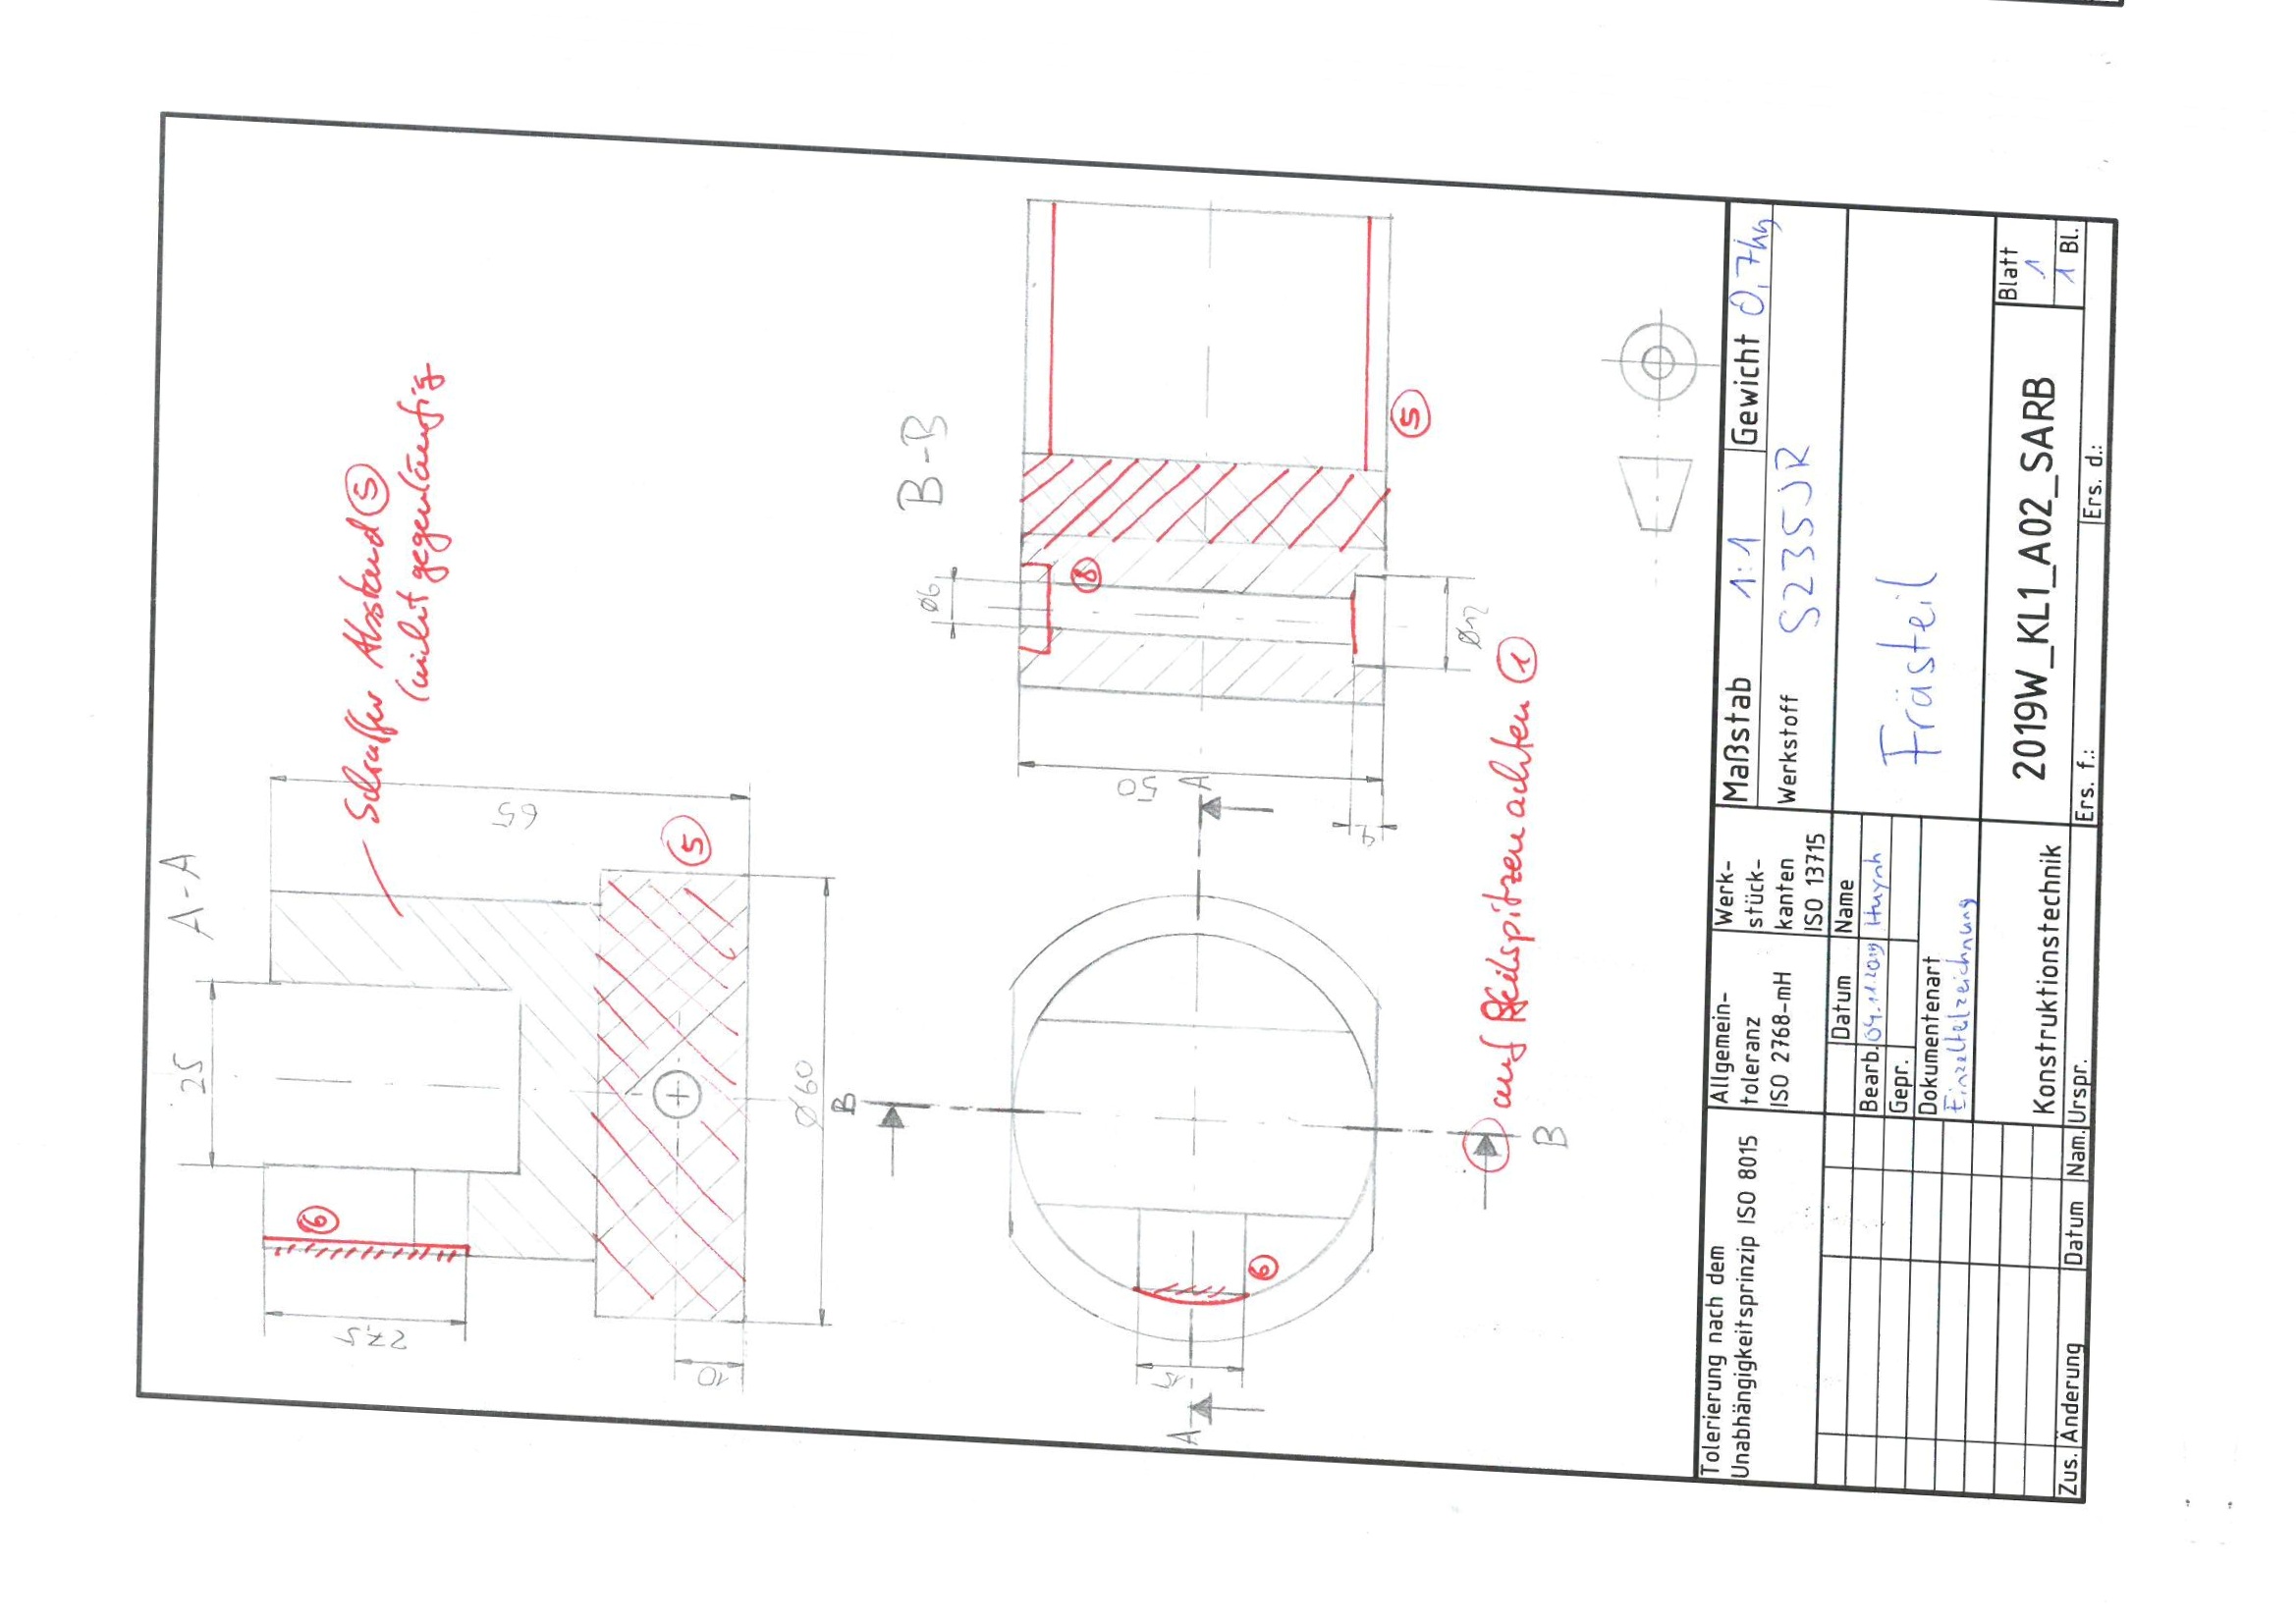 A-A
25
65
27,5
10
Ø60
Schraffur Abstand 5
(nicht gegenläufig
5
6
B
B
A
A
15
6
1 auf Pfeilspitzen achten
B-B
Ø6
Ø12
50
8
5
Tolerierung nach dem
Unabhängigkeitsprinzip ISO 8015
Allgemein-
toleranz
ISO 2768-mH
Werk-
stück-
kanten
ISO 13715
Maßstab 1:1
Gewicht 0,7kg
Werkstoff S235JR
Datum Name
Bearb. 04.11.2019 Huynh
Gepr.
Dokumentenart
Einzelteilzeichnung
Frästeil
Konstruktionstechnik
2019W_KL1_A02_SARB
Blatt
1
1 Bl.
Zus. Änderung Datum Nam. Urspr. Ers. f.: Ers. d.: